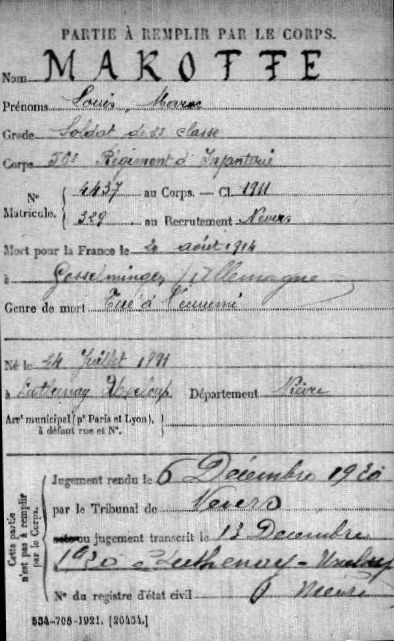 PARTIE À REMPLIR PAR LE CORPS.
Nom MAROTTE
Prénoms Louis, Marac
Grade Soldat de 2e classe
Corps 56e Régiment d'Infanterie
N° Matricule. { 4437 au Corps. — Cl. 1911
329 au Recrutement Nevers
Mort pour la France le 20 août 1914
à Gosselminger, (Allemagne)
Genre de mort Tué à l'ennemi
Né le 24 Juillet 1891
à Luthenay Uxeloup Département Nièvre
Arrt municipal (pr Paris et Lyon), à défaut rue et N°.
Cette partie n'est pas à remplir par le Corps.
Jugement rendu le 6 Décembre 1920
par le Tribunal de Nevers
ou jugement transcrit le 12 Décembre
1920 à Luthenay-Uxeloup
Nièvre
N° du registre d'état civil
534-708-1921. [20434.]